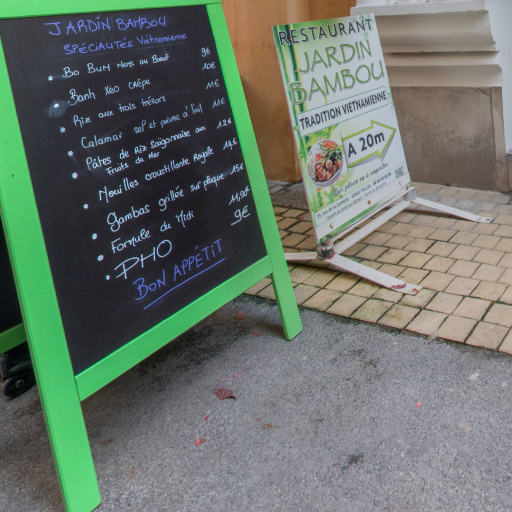 JARDIN BAMBOU
SPÉCIALITÉE Vietnamienne
• Bo Bun Nems au Bœuf 9€
• Banh Xeo CRÊPE 10€
• Riz aux trois trésors 11€
• Calamar sel et poivre à l'ail 11€
• Pâtes de Riz Saigonnaise aux 12€
Fruits de Mer
• Nouilles croustillante Royale 14€
• Gambas grillée sur plaque 15€
• Formule du Midi 11,90€
• PHO 9€
BON APPETIT
RESTAURANT
JARDIN
BAMBOU
TRADITION VIETNAMIENNE
A 20m
Sur place ou à emporter